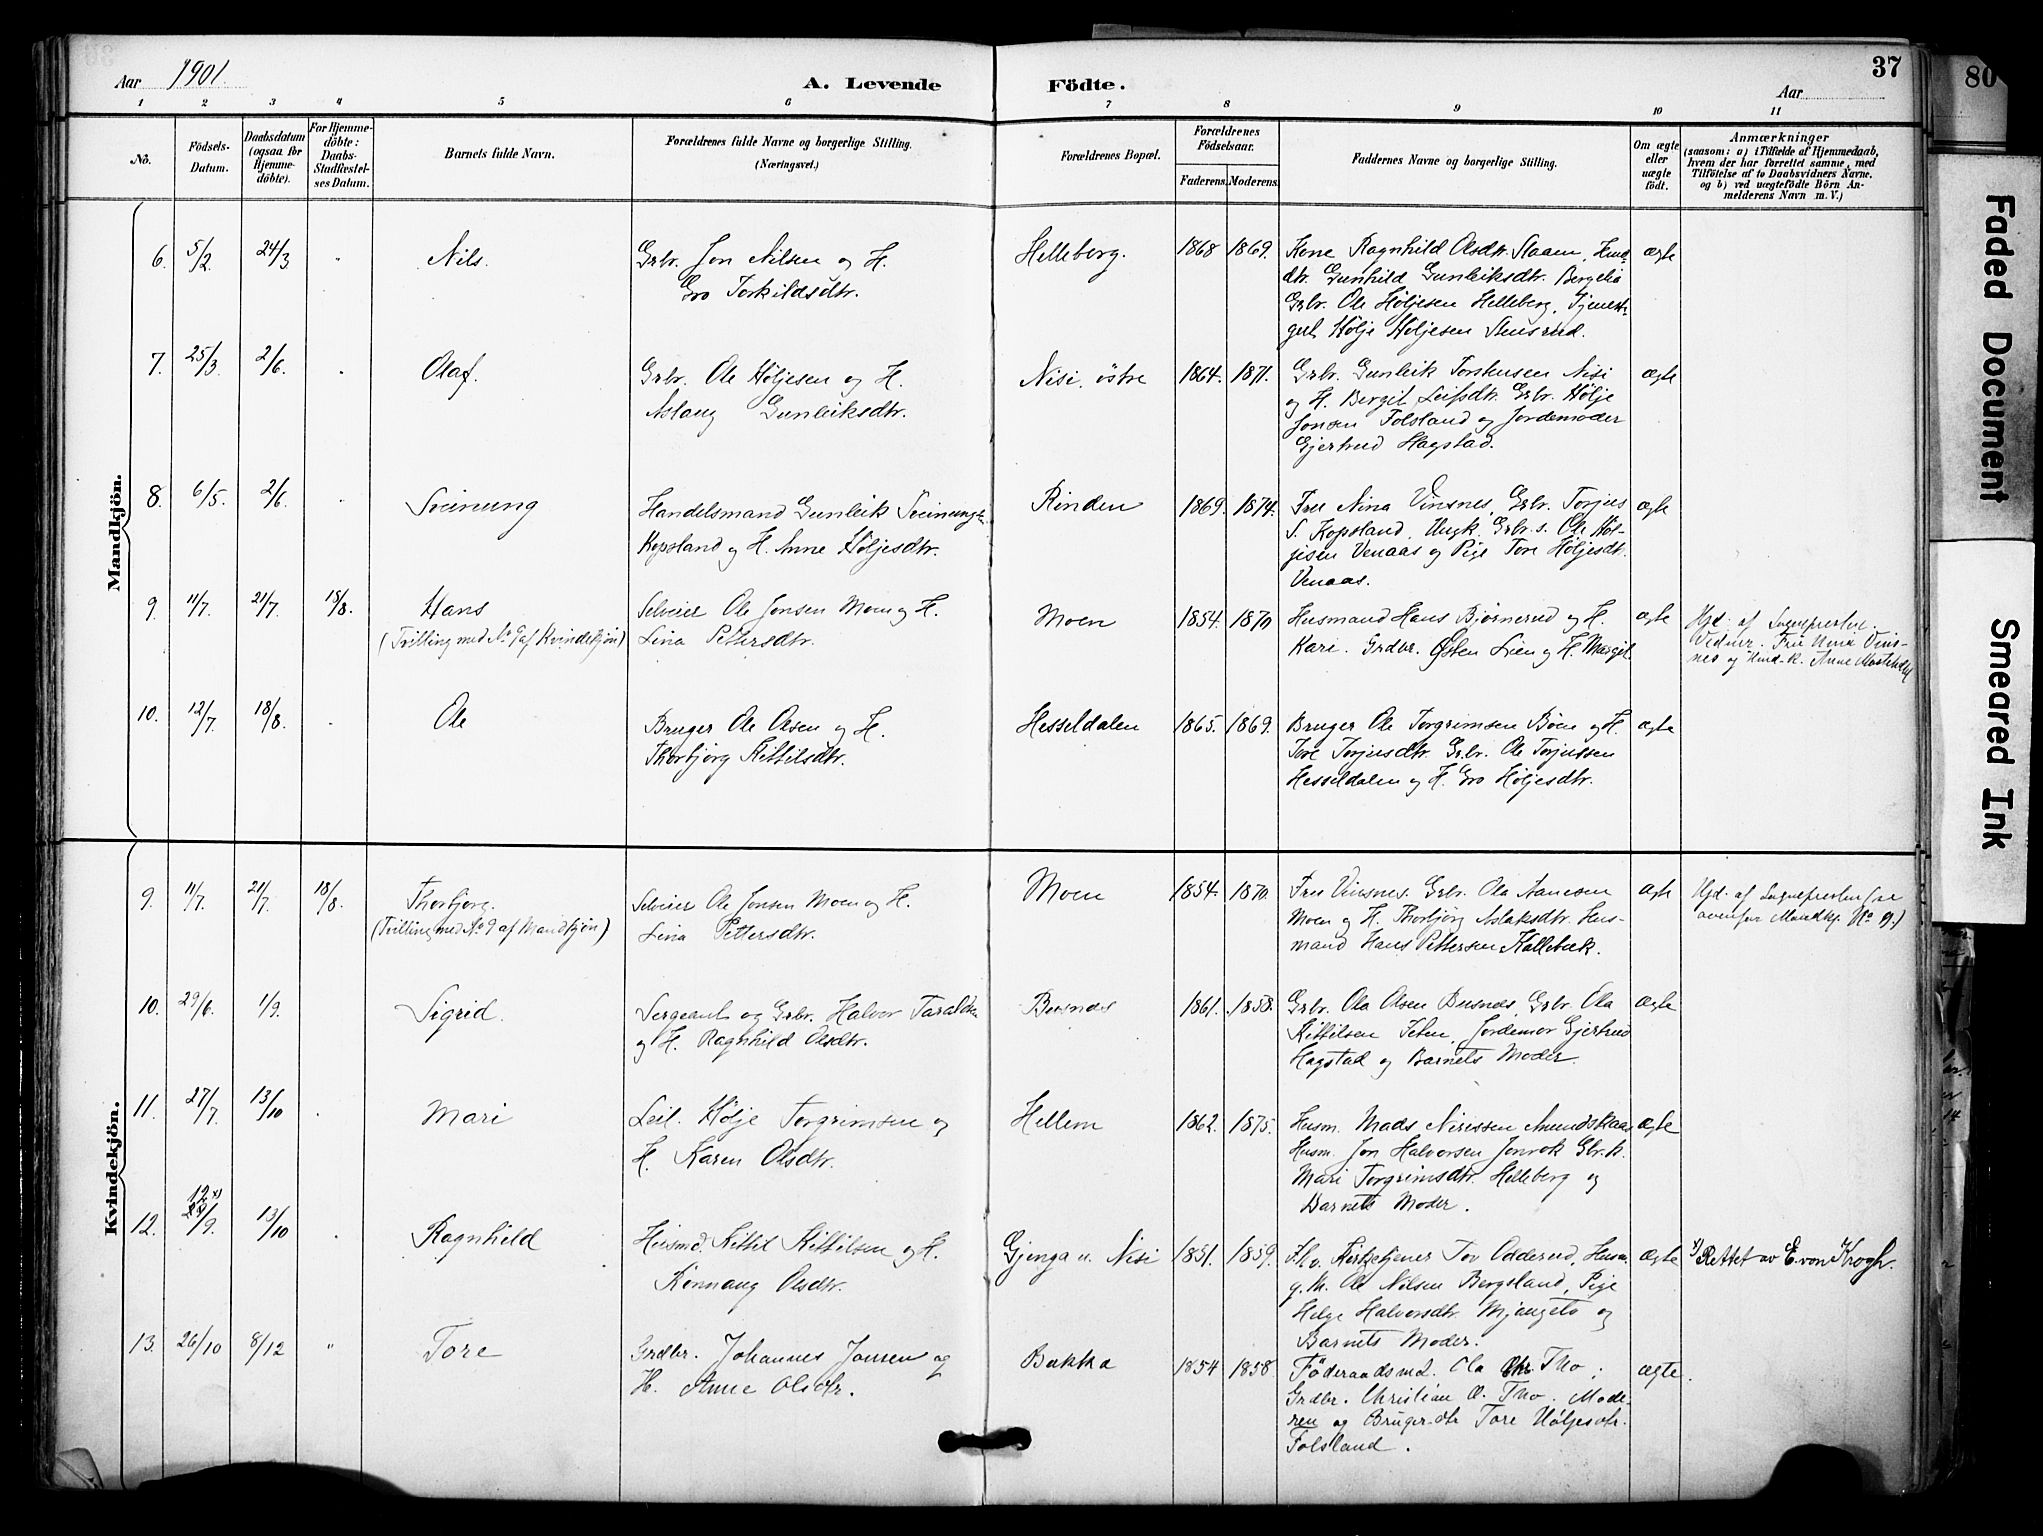 Aar 1901.
A. Levende Födte.
37
Aar
80
1 2 3 4 5 6 7 8 9 10 11
Nô.
Födsels-Datum.
Daabsdatum (ogsaa for Hjemme-döbte).
For Hjemme-döbte: Daabs-Stadfæstel-ses Datum.
Barnets fulde Navn.
Forældrenes fulde Navne og borgerlige Stilling.
(Næringsvei.)
Forældrenes Bopæl.
Forældrenes Födselsaar.
Faderens. Moderens.
Faddernes Navne og borgerlige Stilling.
Om ægte eller uægte födt.
Anmærkninger
(saasom: a) i Tilfælde af Hjemmedaab,
hvem der har forrettet samme, med
Tilföielse af to Daabsvidners Navne.
og b) ved uægtefödte Börn An-
melderens Navn m. V.)
Mandkjön.
6. 5/2. 24/3. " Nils.
Grbr. Jon Nilsen og H.
Gro Torkildsdtr.
Helleberg. 1868 1869.
Kone Ragnhild Olsdtr. Staaen,
dtr. Gunhild Gunleiksdtr.
Grbr. Ole Høljesen Helleberg,
Hølje Høljesen
ægte
7. 25/3. 2/6. " Olaf.
Grbr. Ole Høljesen og H.
Aslaug Gunleiksdtr.
Nisi, østre 1864. 1871.
Grbr. Gunleik Nisi
og H. Bergit Leifsdtr. Grbr. Hølje
Jonsen Folsland og Jordemoder
Gjertrud Hagstad.
ægte
8. 6/5. 2/6. " Sveinung
Handelsmand Gunleik Sveinungs.
Kopsland og H. Anne Høljesdtr.
Rinden 1869. 1874.
Fru Nina Vinsnes, Grbr. Torjus
S. Kopsland, Ungk. Grbr.s. Ole Høl-
jesen Venaas og Pige Tore Høljesdt.
Venaas.
ægte
9. 11/7. 21/7. 18/8. Hans
(Tvilling med No 9 af Kvindekjøn)
Selveier Ole Jonsen Moen og H.
Lina Pettersdtr.
Moen 1854. 1870
Husmand Hans Bjørnerud og H.
Kari. Grdbr. Østen Lien og H. Margit
ægte
Hjd. af Sognepresten.
Vidner. Fru Nina Vins-
nes og Anne
10. 12/7. 18/8. " Ole
Bruger Ole Olsen og H.
Thorbjørg Kittilsdtr.
Hesseldalen 1865. 1869.
Bruger Ole Torgrimsen Bøen og H.
Tore Torjusdtr. Grbr. Ole Torjussen
Hesseldalen og H. Gro Høljesdtr.
ægte
Kvindekjön.
9. 11/7. 21/7. 18/8. Thorbjørg.
(Tvilling med No 9 af Mandkjøn)
Selveier Ole Jonsen Moen og H.
Lina Pettersdtr.
Moen 1854. 1870.
Fru Vinsnes, Grbr. Ola Aanesen
Moen og H. Thorbjörg Aslaksdtr. Hus-
mand Hans Pettersen Kallebæk.
ægte
Hjd. af Sognepresten (se
ovenfor Mandkj. No 9.)
10. 29/6. 1/9. Sigrid.
Sergeant og Grbr. Halvor Taraldsen
og H. Ragnhild Olsdtr.
Busnes 1861. 1858.
Grbr. Ola Olsen Busnes, Grbr. Ola
Kittilsen Jordemor Gjertrud
Hagstad og Barnets Moder.
ægte
11. 27/7. 13/10 . Mari
Leil. Hølje Torgrimsen og
H. Karen Olsdtr.
Hellem 1862. 1875.
Husm. Mads Nirissen
Husm. Jon Halvorsen
Mari Torgrimsdtr. Helleberg og
Barnets Moder.
ægte
12. 12 x) /9. 13/10 . Ragnhild
Husmd. Kittil Kittilsen og H.
Rønnaug Olsdtr.
Gjenga u. Nisi 1851. 1859.
Fhv. Kirketjener Tov Odderud, Husm.
g.M. Ole Nilsen Bergsland, Pige
Helge Halvorsdtr. og
Barnets Moder.
ægte
x) Rettet av E. von Krogh.
13. 26/10 8/12 " Tore
Grdbr. Johannes Jonsen og
H. Anne Olsdtr.
Bakka 1854 1858
Föderaadsmd. Ola Chr. Tho;
Grdbr. Christian O. Tho. Mode-
ren og Bruger-dtr Tore Höljesdtr.
Folsland.
ægte.
Faded Document
Smeared Ink